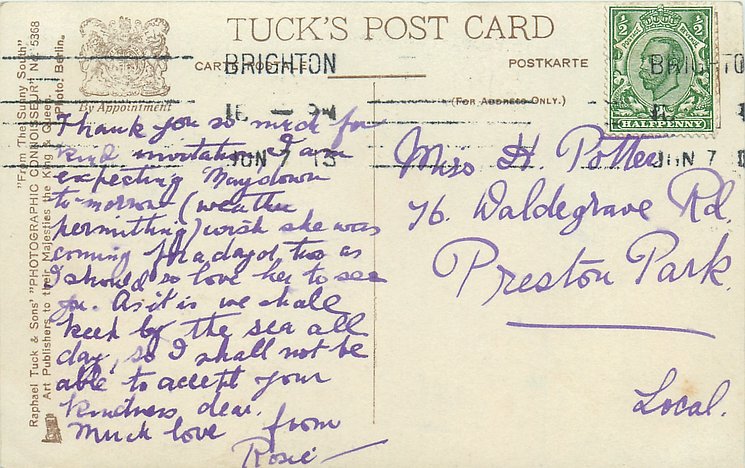 TUCK'S POST CARD
CARTE POSTALE
POSTKARTE
(FOR ADDRESS ONLY.)
By Appointment
"From The Sunny South"
Raphael Tuck & Sons' "PHOTOGRAPHIC CONNOISSEUR" No. 5368
Art Publishers to their Majesties the King & Queen.
Photo: Berlin.
BRIGHTON
JUN 7 13
BRIGHTO
JUN 7 1
1/2 1/2
POSTAGE
HALFPENNY
Thank you so much for
kind invitation. I am
expecting May down
to-morrow (weather
permitting) wish she was
coming for a day or two as
I should so love her to see
you. As it is we shall
keep by the sea all
day, so I shall not be
able to accept your
kindness dear.
Much love from
Rosie
Miss H. Potter
76. Waldegrave Rd.
Preston Park.
Local.